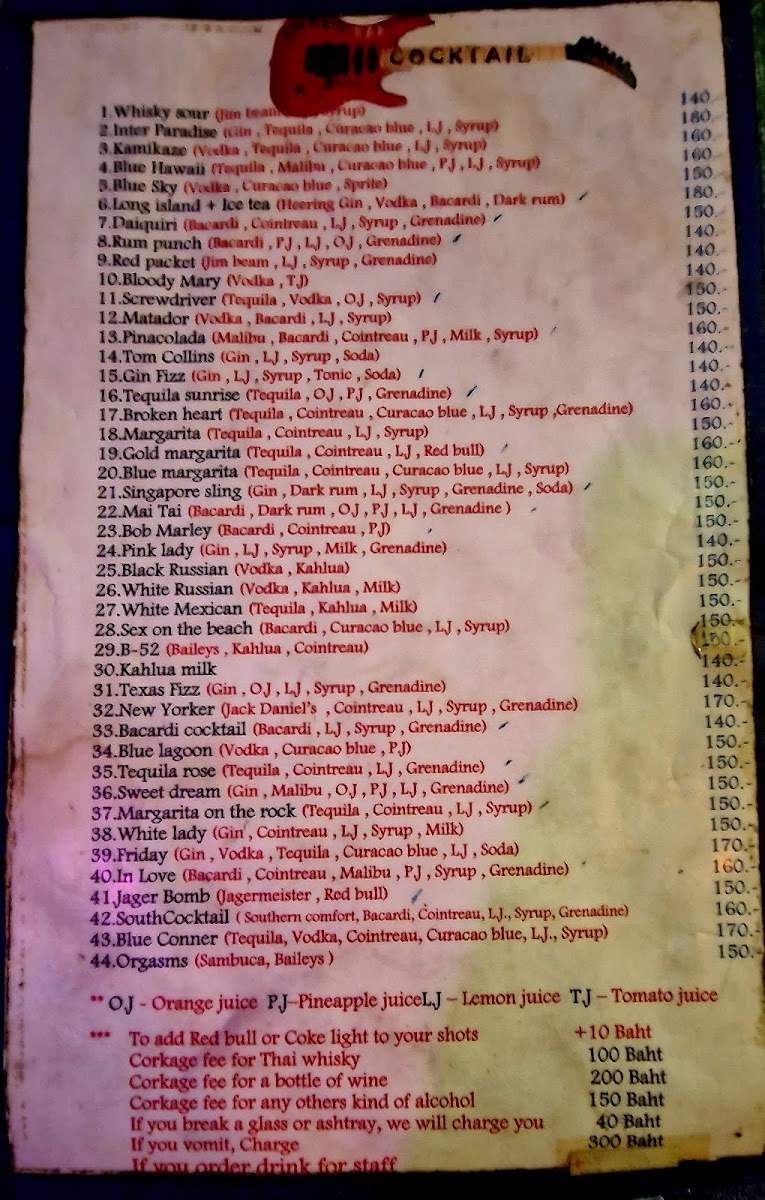 BAR
COCKTAIL
1.Whisky sour (Jim beam Syrup) 140.-
2.Inter Paradise (Gin , Tequila , Curacao blue , L.J , Syrup) 180.-
3.Kamikaze (Vodka , Tequila , Curacao blue , L.J , Syrup) 160.-
4.Blue Hawaii (Tequila , Malibu , Curacao blue , P.J , L.J , Syrup) 160.-
5.Blue Sky (Vodka , Curacao blue , Sprite) 150.-
6.Long island + Ice tea (Heering Gin , Vodka , Bacardi , Dark rum) 180.-
7.Daiquiri (Bacardi , Cointreau , L.J , Syrup , Grenadine) 150.-
8.Rum punch (Bacardi , P.J , L.J , O.J , Grenadine) 140.-
9.Red packet (Jim beam , L.J , Syrup , Grenadine) 140.-
10.Bloody Mary (Vodka , T.J) 140.-
11.Screwdriver (Tequila , Vodka , O.J , Syrup) 150.-
12.Matador (Vodka , Bacardi , L.J , Syrup) 150.-
13.Pinacolada (Malibu , Bacardi , Cointreau , P.J , Milk , Syrup) 160.-
14.Tom Collins (Gin , L.J , Syrup , Soda) 140.-
15.Gin Fizz (Gin , L.J , Syrup , Tonic , Soda) 140.-
16.Tequila sunrise (Tequila , O.J , P.J , Grenadine) 140.-
17.Broken heart (Tequila , Cointreau , Curacao blue , L.J , Syrup ,Grenadine) 160.-
18.Margarita (Tequila , Cointreau , L.J , Syrup) 150.-
19.Gold margarita (Tequila , Cointreau , L.J , Red bull) 160.-
20.Blue margarita (Tequila , Cointreau , Curacao blue , L.J , Syrup) 160.-
21.Singapore sling (Gin , Dark rum , L.J , Syrup , Grenadine , Soda) 150.-
22.Mai Tai (Bacardi , Dark rum , O.J , P.J , L.J , Grenadine ) 150.-
23.Bob Marley (Bacardi , Cointreau , P.J) 150.-
24.Pink lady (Gin , L.J , Syrup , Milk , Grenadine) 140.-
25.Black Russian (Vodka , Kahlua) 150.-
26.White Russian (Vodka , Kahlua , Milk) 150.-
27.White Mexican (Tequila , Kahlua , Milk) 150.-
28.Sex on the beach (Bacardi , Curacao blue , L.J , Syrup) 150.-
29.B-52 (Baileys , Kahlua , Cointreau) 150.-
30.Kahlua milk 140.-
31.Texas Fizz (Gin , O.J , L.J , Syrup , Grenadine) 140.-
32.New Yorker (Jack Daniel's , Cointreau , L.J , Syrup , Grenadine) 170.-
33.Bacardi cocktail (Bacardi , L.J , Syrup , Grenadine) 140.-
34.Blue lagoon (Vodka , Curacao blue , P.J) 150.-
35.Tequila rose (Tequila , Cointreau , L.J , Grenadine) 150.-
36.Sweet dream (Gin , Malibu , O.J , P.J , L.J , Grenadine) 150.-
37.Margarita on the rock (Tequila , Cointreau , L.J , Syrup) 150.-
38.White lady (Gin , Cointreau , L.J , Syrup , Milk) 150.-
39.Friday (Gin , Vodka , Tequila , Curacao blue , L.J , Soda) 170.-
40.In Love (Bacardi , Cointreau , Malibu , P.J , Syrup , Grenadine) 160.-
41.Jager Bomb (Jagermeister , Red bull) 150.-
42.SouthCocktail ( Southern comfort, Bacardi, Cointreau, L.J., Syrup, Grenadine) 160.-
43.Blue Conner (Tequila, Vodka, Cointreau, Curacao blue, L.J., Syrup) 170.-
44.Orgasms (Sambuca, Baileys ) 150.-
** O.J - Orange juice P.J–Pineapple juiceL.J – Lemon juice T.J – Tomato juice
*** To add Red bull or Coke light to your shots +10 Baht
Corkage fee for Thai whisky 100 Baht
Corkage fee for a bottle of wine 200 Baht
Corkage fee for any others kind of alcohol 150 Baht
If you break a glass or ashtray, we will charge you 40 Baht
If you vomit, Charge 300 Baht
If you order drink for staff